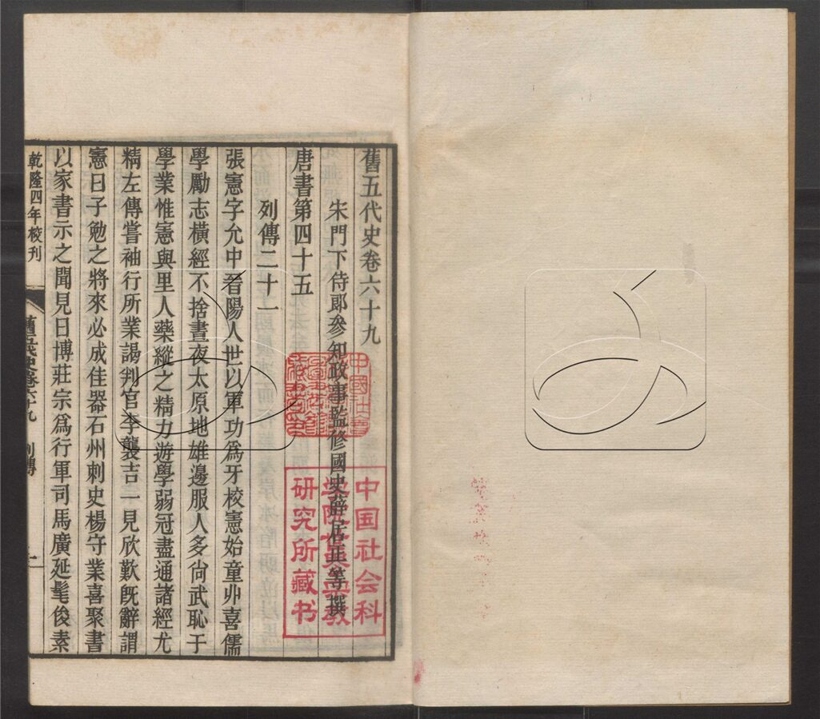 舊五代史卷六十九
朱門下侍郎參知政事監修國史薛居正等撰
唐書第四十五
列傳二十一
張憲字允中晉陽人世以軍功爲牙校憲始童丱喜儒
學勵志橫經不捨晝夜太原地雄邊服人多尙武恥于
學業惟憲與里人藥縱之精力遊學弱冠盡通諸經尤
精左傳嘗袖行所業謁判官李襲吉一見欣歎旣辭謂
憲曰子勉之將來必成佳器石州刺史楊守業喜聚書
以家書示之聞見日博莊宗爲行軍司馬廣延髦俊素
乾隆四年校刊
舊五代史卷六十九 列傳
中国社会科
学院
研究所藏书